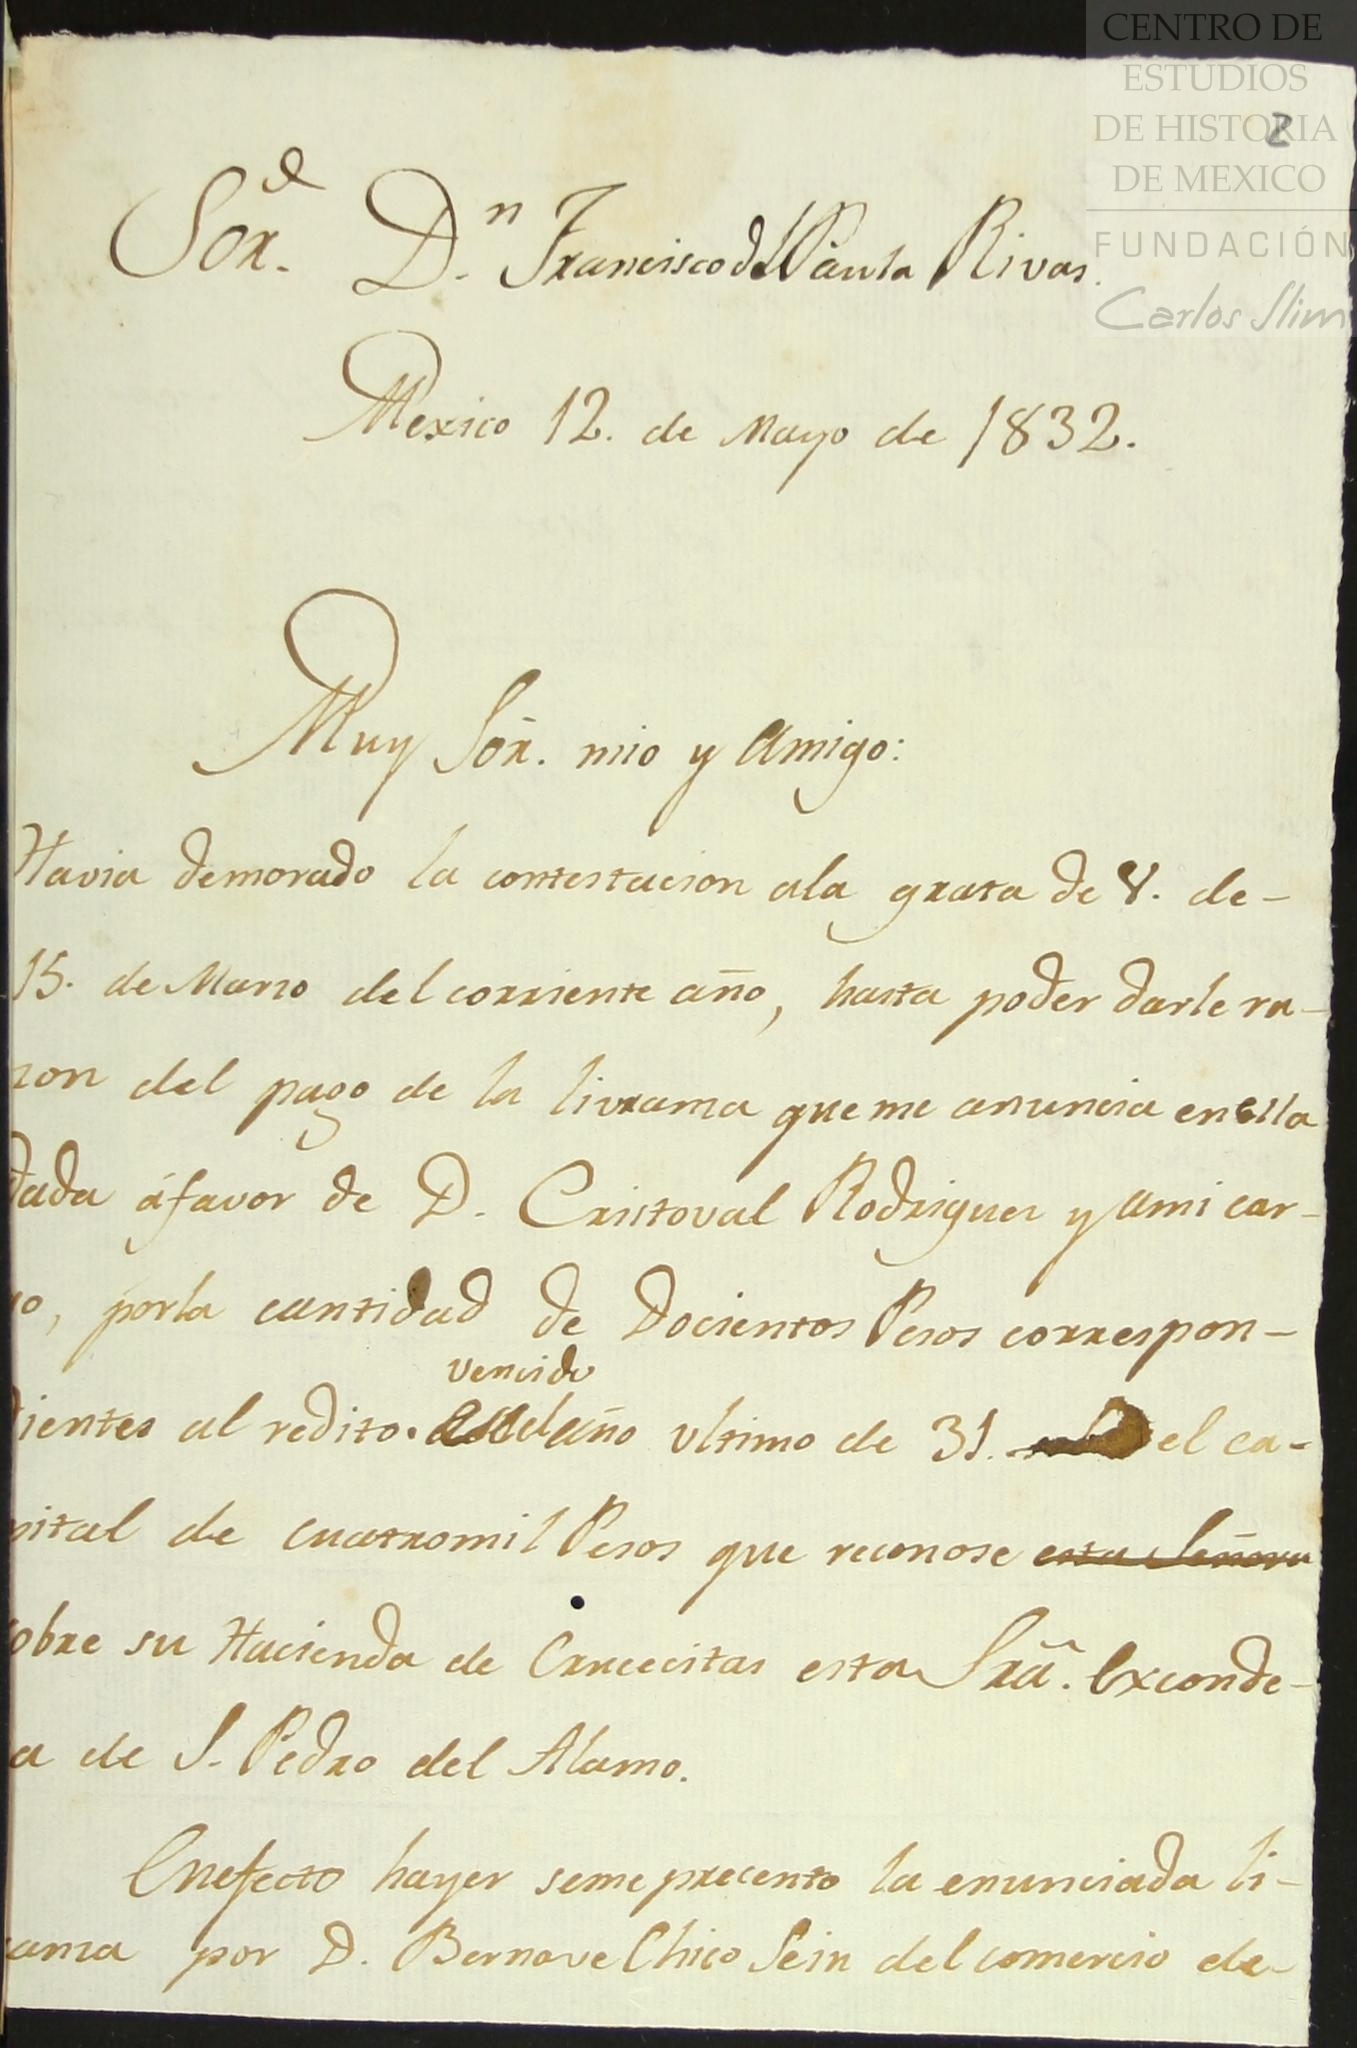 CENTRO DE
ESTUDIOS
DE HISTORIA
DE MEXICO
FUNDACIÓN
Carlos Slim
2
Sor. Dn. Francisco de Paula Rivas.
Mexico 12. de Mayo de 1832.
Muy Sôr. mio y Amigo:
Havia demorado la contestacion ala grata de V. de-
15. de Marzo del corriente año, hasta poder darle ra-
zon del pago de la livranza que me anuncia en ella
dada á favor de D. Cristoval Rodriguez y ami car-
go, por la cantidad de Docientos Pesos correspon-
vencido
dientes al redito. del año ultimo de 31. el ca-
pital de cuatromil Pesos que reconose esta Señora
sobre su Hacienda de Crucecitas esta Srâ. Exconde-
a de S. Pedro del Alamo.
Enefecto hayer seme precento la enunciada li-
ranza por D. Bernave Chico Sein del comercio de-